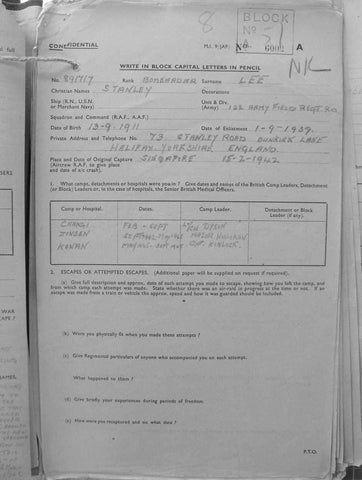 8
BLOCK
No 51
CONFIDENTIAL
M.I. 9/JAP/ No 6002
A
NK
WRITE IN BLOCK CAPITAL LETTERS IN PENCIL
No. 891717 Rank BOMBARDIER Surname LEE
Christian Names STANLEY Decorations
Ship (R.N., U.S.N. or Merchant Navy)
Unit & Div. (Army) 122 ARMY FIELD REGT. RA
Squadron and Command (R.A.F., A.A.F.)
Date of Birth 13-9-1911 Date of Enlistment 1-9-1939.
Private Address and Telephone No. 73 STANLEY ROAD DUNKIRK LANE
HALIFAX YORKSHIRE ENGLAND.
Place and Date of Original Capture SINGAPORE 15-2-1942
(Aircrew R.A.F. to give place and date of air crash).
1. What camps, detachments or hospitals were you in? Give dates and names of the British Camp Leaders, Detachment (or Block) Leaders or, in the case of hospitals, the Senior British Medical Officers.
Camp or Hospital. Dates. Camp Leader. Detachment or Block Leader (if any).
CHANGI FEB - SEPT
JINSEN MAJOR
KONAN CPT. KINLOCK.
2. ESCAPES OR ATTEMPTED ESCAPES. (Additional paper will be supplied on request if required).
(a) Give full description and approx. date of each attempt you made to escape, showing how you left the camp, and from which camp each attempt was made. State whether there was an air-raid in progress at the time or not. If an escape was made from a train or vehicle the approx. speed and how it was guarded should be included.
(b) Were you physically fit when you made those attempts?
(c) Give Regimental particulars of anyone who accompanied you on each attempt.
What happened to them?
(d) Give briefly your experiences during periods of freedom.
(e) How were you recaptured and on what date?
P.T.O.